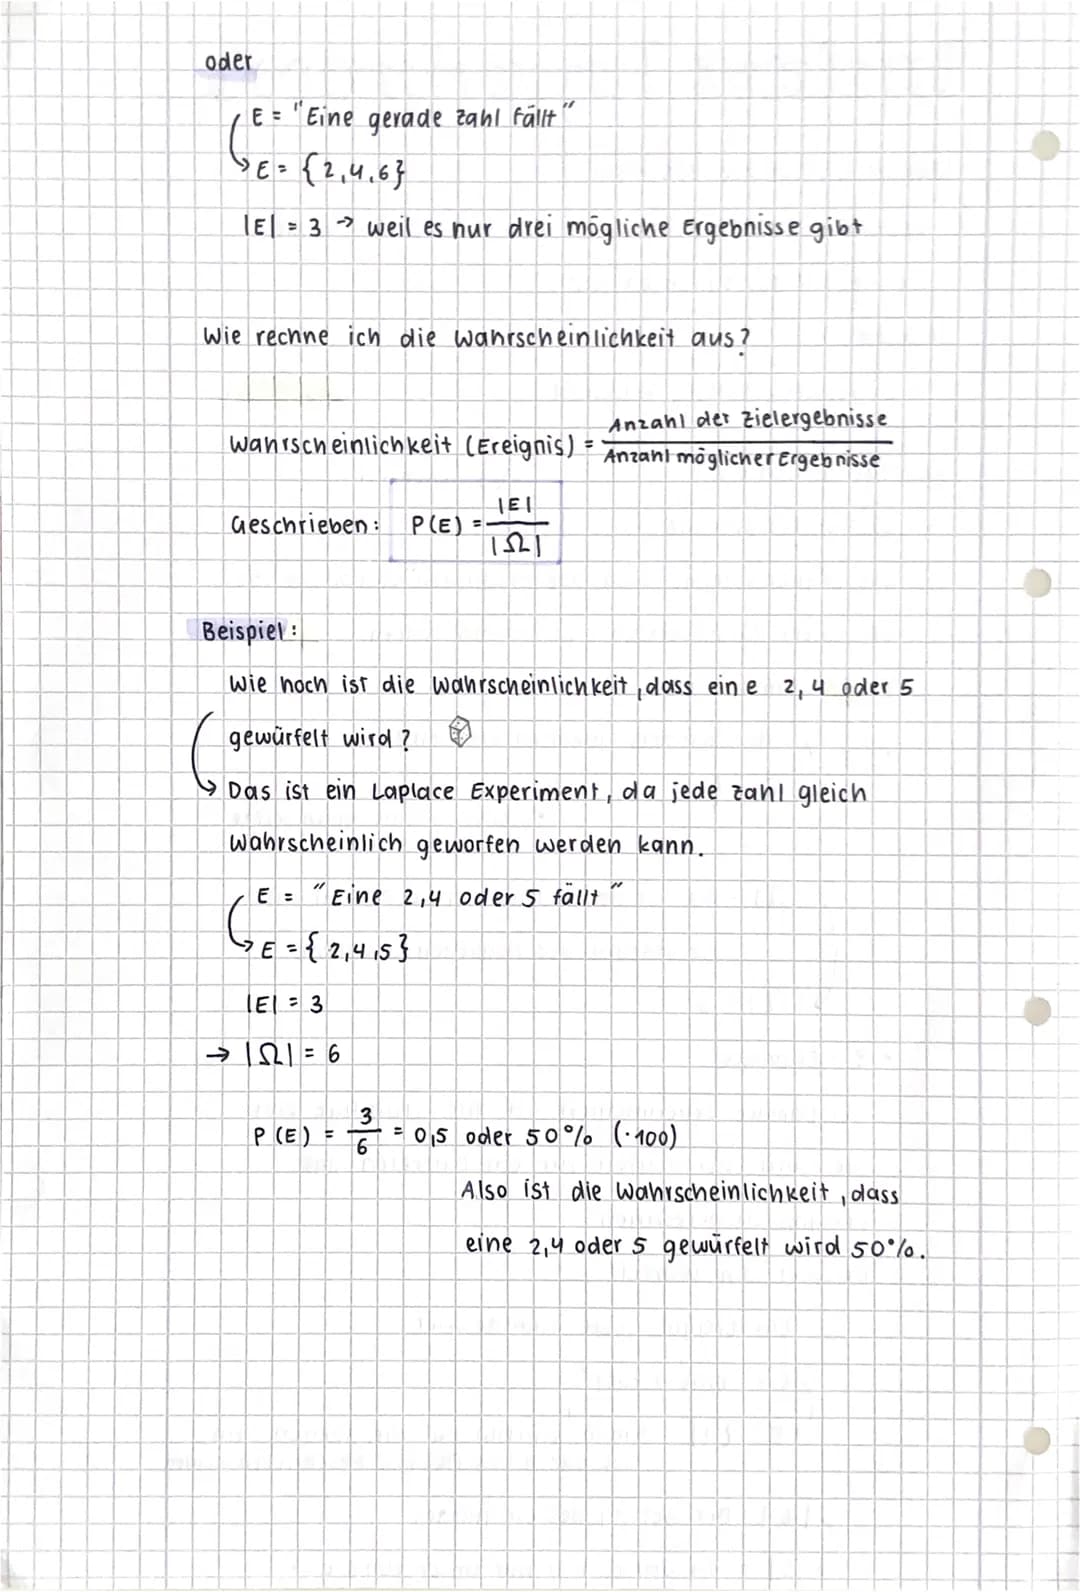 oder
E = "Eine gerade Zahl fällt"
↳ E = {2,4,6}
|E| = 3 → weil es nur drei mögliche Ergebnisse gibt
Wie rechne ich die Wahrscheinlichkeit aus?
Wahrscheinlichkeit (Ereignis) = Anzahl der Zielergebnisse / Anzahl möglicher Ergebnisse
Geschrieben: P(E) = |E| / |Ω|
Beispiel:
Wie hoch ist die Wahrscheinlichkeit, dass eine 2, 4 oder 5
gewürfelt wird?
↳ Das ist ein Laplace Experiment, da jede Zahl gleich
Wahrscheinlich geworfen werden kann.
E = "Eine 2,4 oder 5 fällt"
↳ E = {2,4,5}
|E| = 3
→ |Ω| = 6
P(E) = 3/6 = 0,5 oder 50% (·100)
Also ist die Wahrscheinlichkeit, dass
eine 2,4 oder 5 gewürfelt wird 50%.